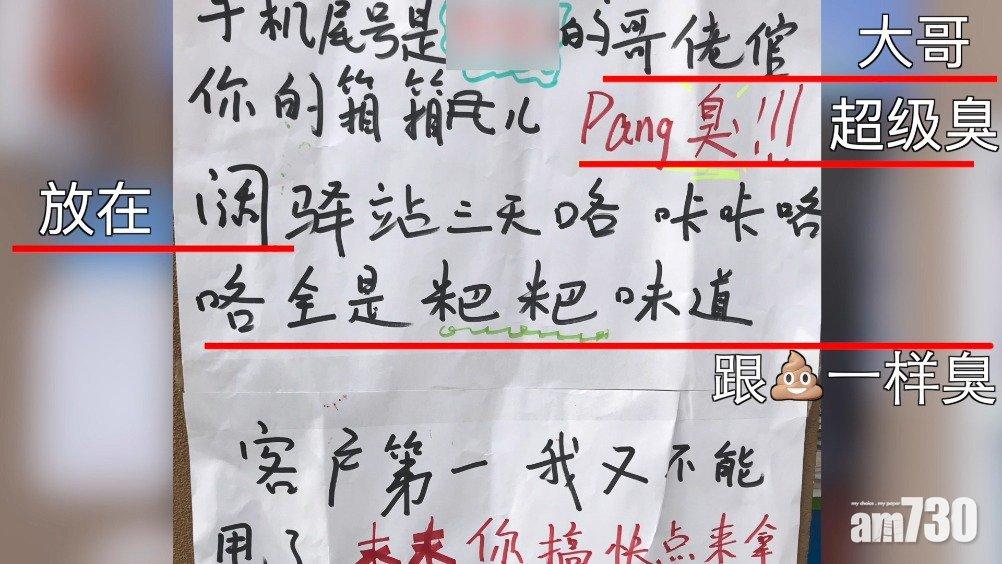 手机尾号是 的哥佬倌 大哥
你的箱箱 儿 Pang臭!!! 超级臭
放在 阔驿站三天咯 咔咔咯
咯全是粑粑味道
跟💩一样臭
客户第一 我又不能
甩了 求求你搞快点来拿
my choice . my paper
am730